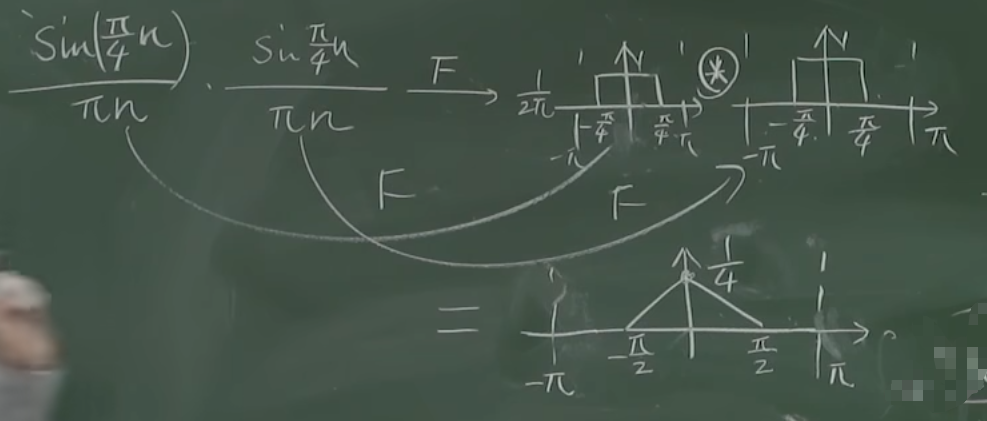 sin(π/4 n)/πn · sin π/4 n/πn F→ 1/2π 1 ⊛ 1
-π -π/4 π/4 π -π -π/4 π/4 π
F F
= 1/4
-π -π/2 π/2 π